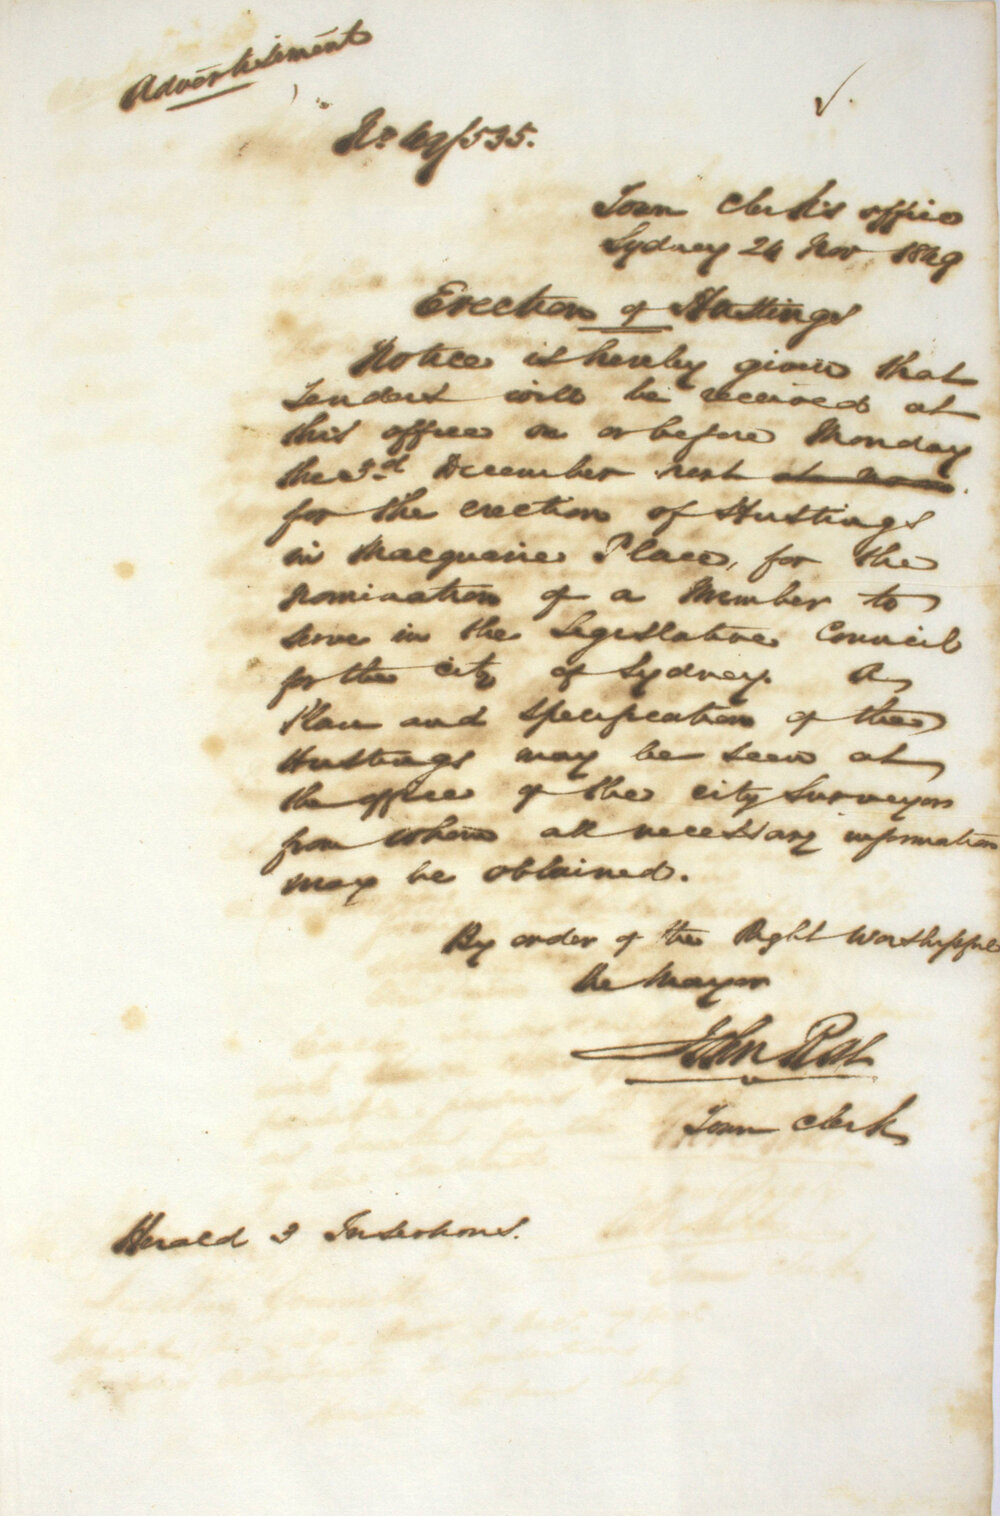 Advertisement
No 49/535.
Town Clerk's office
Sydney 24 Nov 1849
Erection of Hustings
Notice is hereby given that
Tenders will be received at
this office on or before Monday
the 3rd December next at noon
for the erection of Hustings
in Macquarie Place, for the
nomination of a Member to
serve in the Legislative Council
for the city of Sydney. A
Plan and Specification of the
Hustings may be seen at
the office of the city Surveyor
from whom all necessary information
may be obtained.
By order of the Right Worshipful
the Mayor
John Rae
Town Clerk
Herald 3 Insertions.